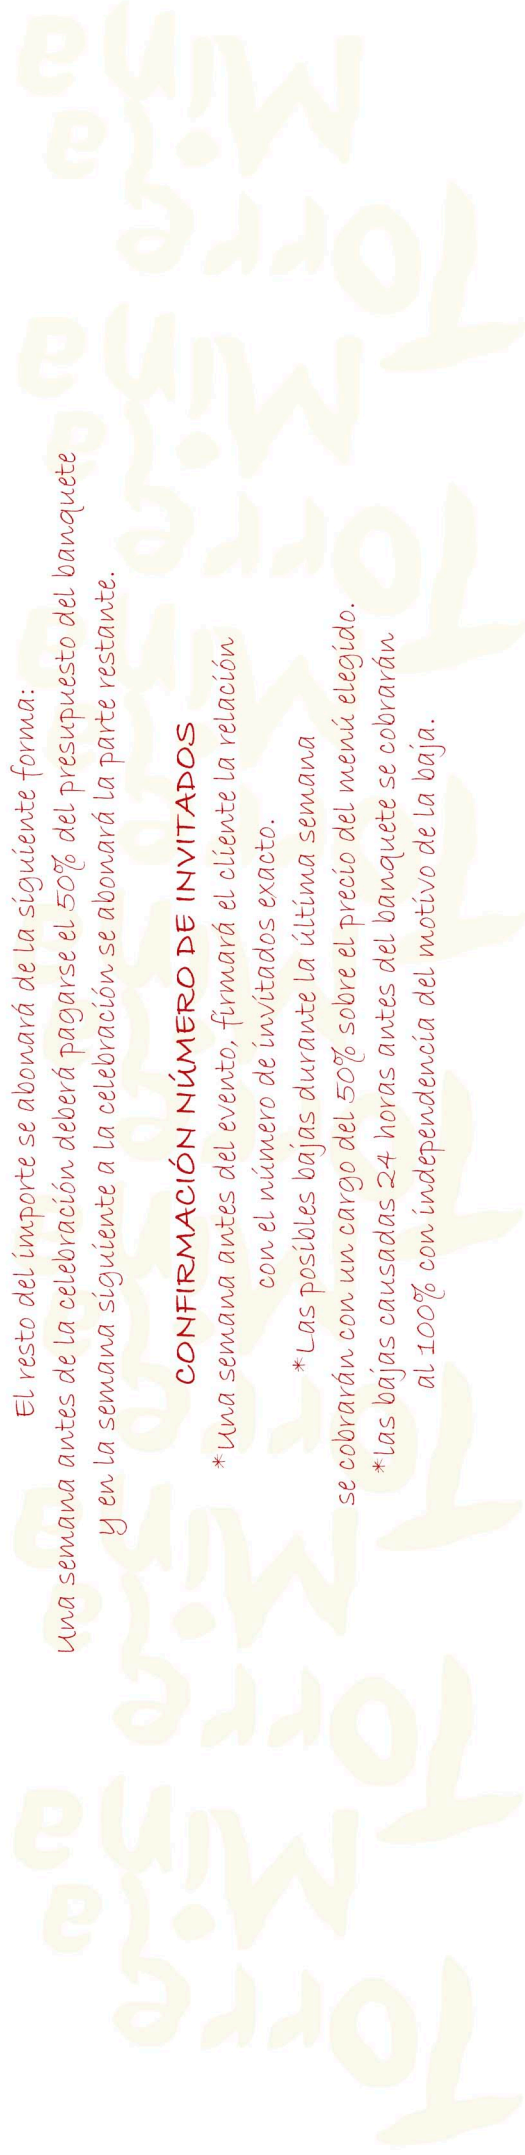 El resto del importe se abonará de la siguiente forma:
Una semana antes de la celebración deberá pagarse el 50% del presupuesto del banquete
y en la semana siguiente a la celebración se abonará la parte restante.
CONFIRMACIÓN NÚMERO DE INVITADOS
*Una semana antes del evento, firmará el cliente la relación
con el número de invitados exacto.
*Las posibles bajas durante la última semana
se cobrarán con un cargo del 50% sobre el precio del menú elegido.
*las bajas causadas 24 horas antes del banquete se cobrarán
al 100% con independencia del motivo de la baja.